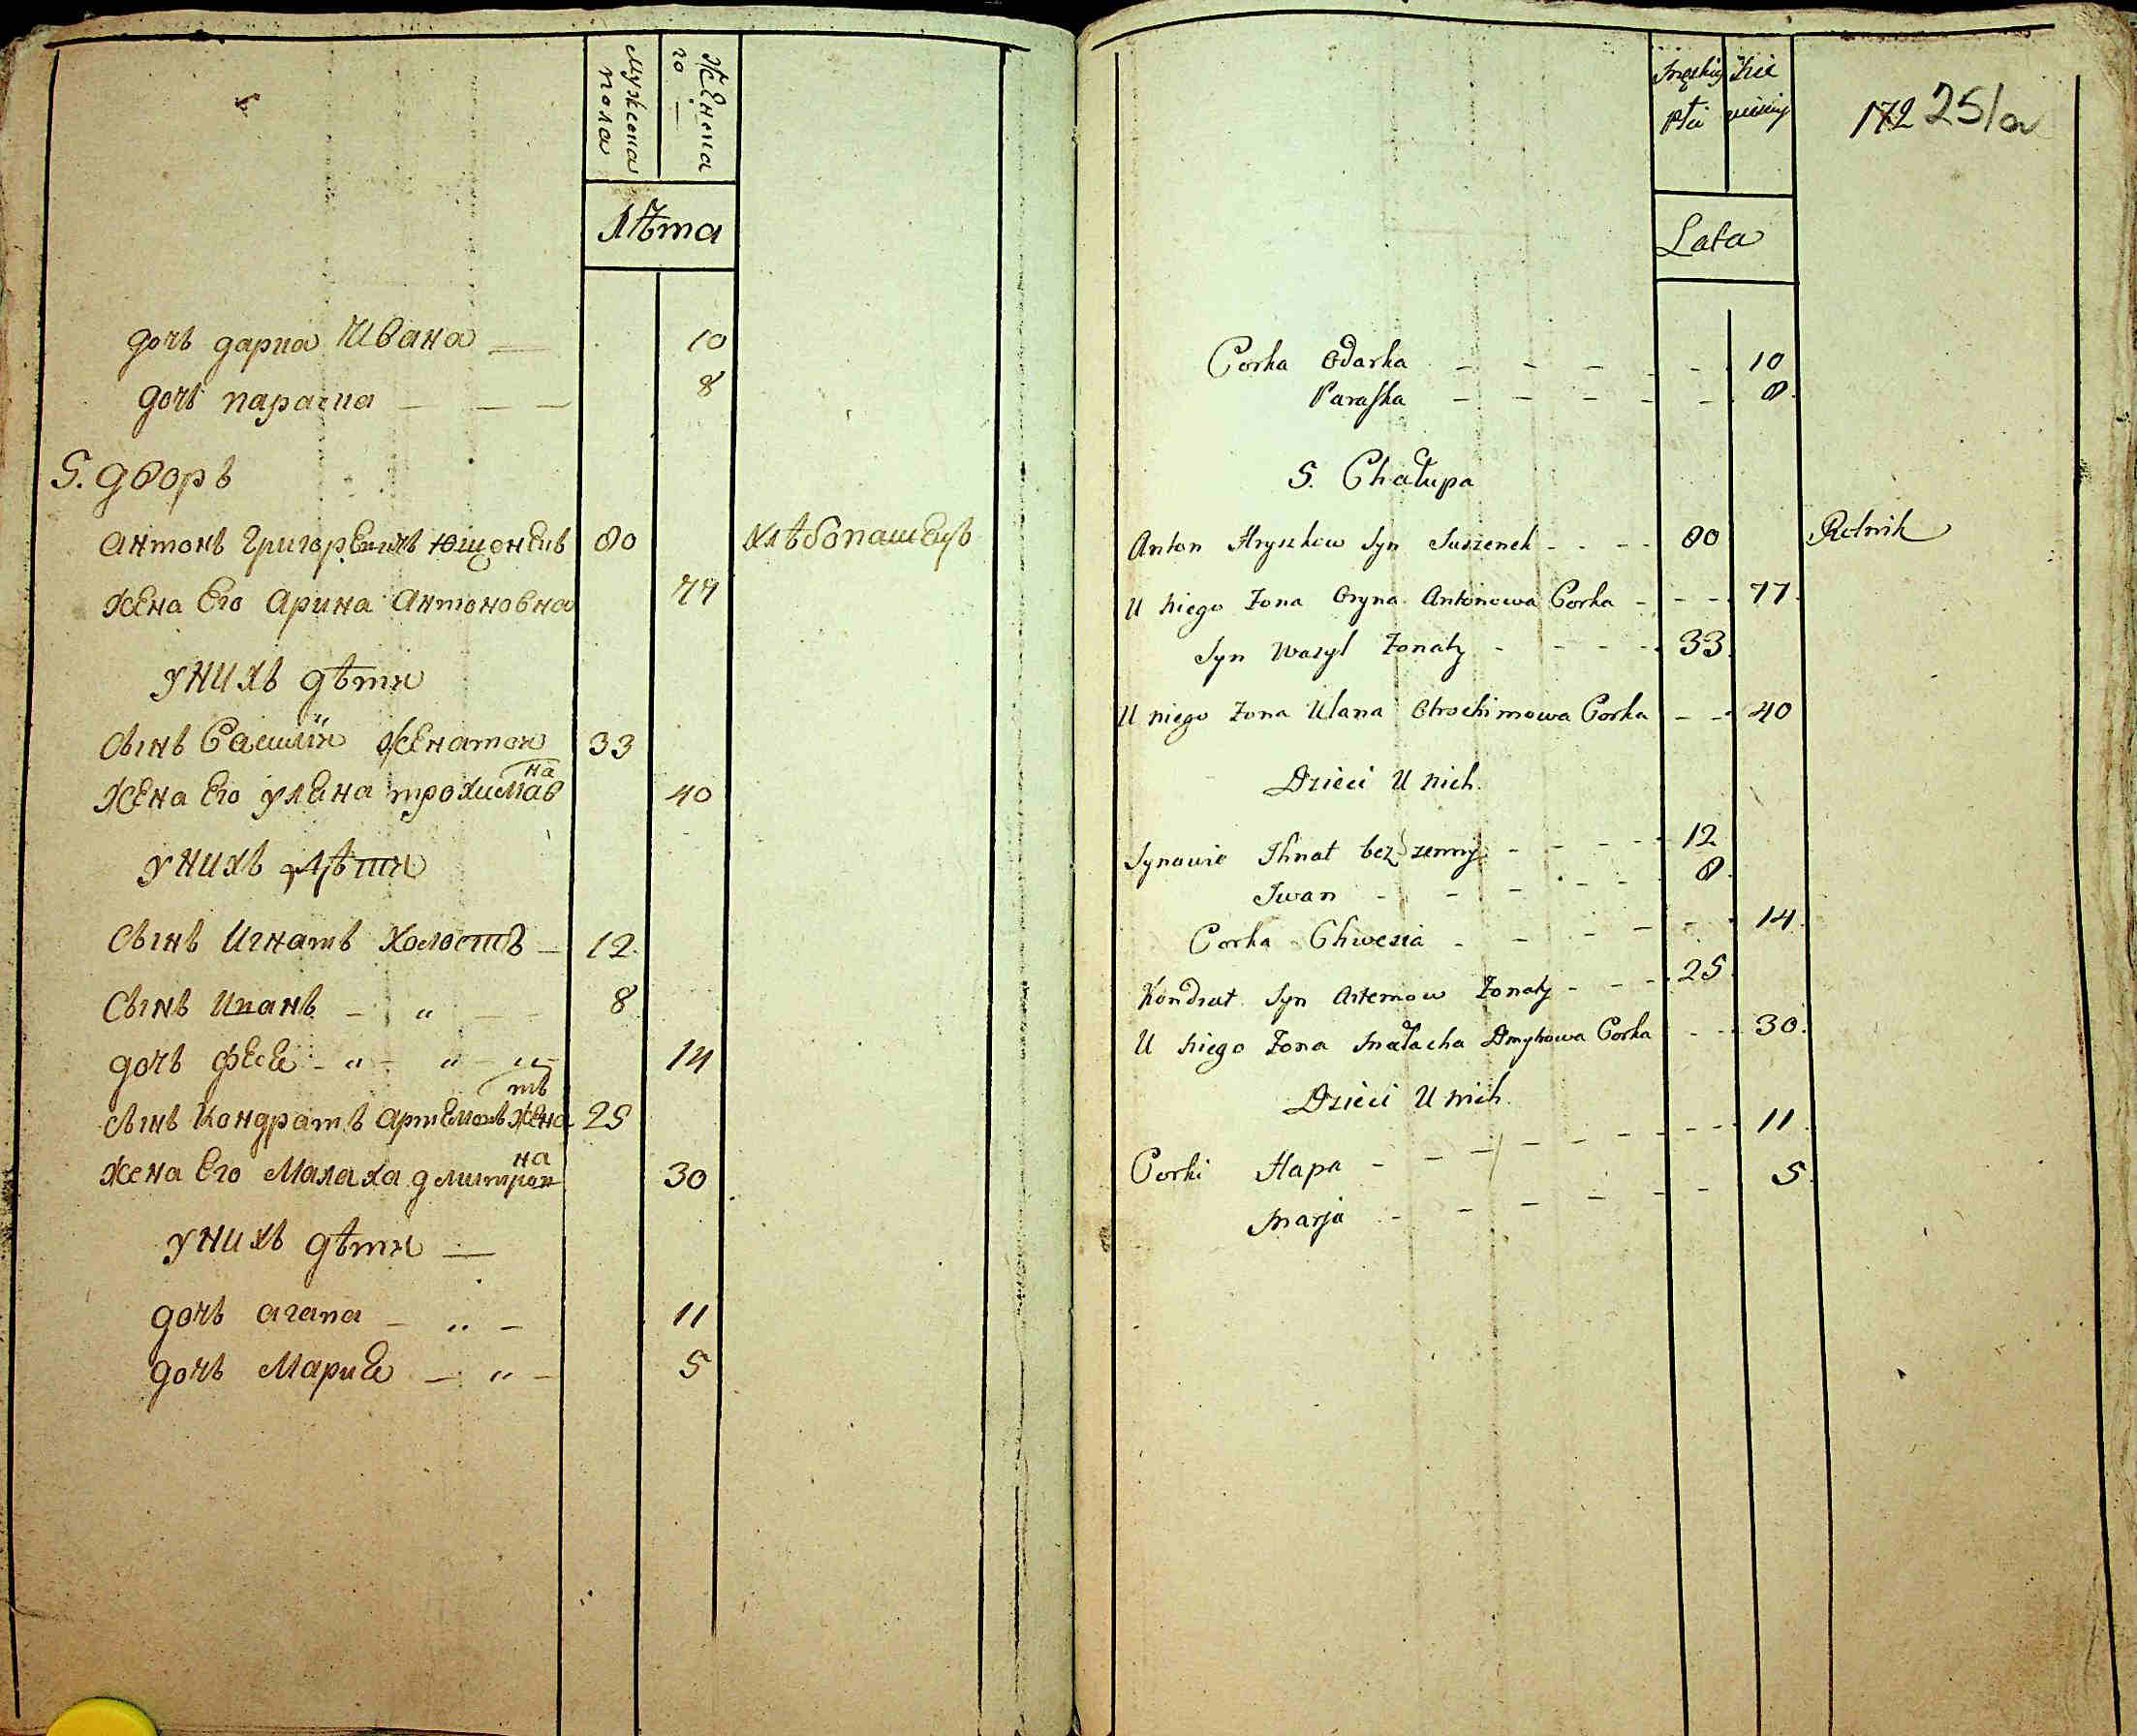 мужеска пола
женска го
лѣта
дочь дарка Ивана — 10
дочь параска — — — 8
5. дворъ
антонъ григорьевичъ ющенкив 80 хлѣбопашецъ
жена Его Арина Антоновна 77
у нихъ дѣти
сынъ Василий женатои 33
жена Его уляна трохимовна 40
у нихъ дѣти
сынъ Игнатъ холостъ — 12.
сынъ Иванъ — „ — — 8
дочь феся - „ - „ - „ - 14
сынъ Кондратъ артемовъ женатъ 25
жена Его Малаха дмитровна 30
у нихъ дѣти —
дочь агапа — „ — 11
дочь Мария — „ — 5
Męskiej płci
Żeń skiej
172 251/a
Lata
Corka Odarka - - - - - 10
Paraska - - - - - 8.
5. Chałupa
Anton Hryszkow Syn Juszenek - - - - 80 Rolnik
U niego Zona Oryna Antonowa Corka - - - 77.
Syn Wasyl Zonaty - - - - 33.
U niego Zona Ulana Otrochimowa Corka - - 40
Dzieci U nich.
Synowie Ihnat bez zenny - - - - 12
Iwan - - - - - 8.
Corka Chwesia - - - - - 14.
Kondrat Syn Artemow Zonaty - - - 25.
U niego Zona Małacha Dmytrowa Corka - - 30.
Dzieci U nich.
Corki Hapa - - - - - - - - 11.
Marja - - - - - - 5.